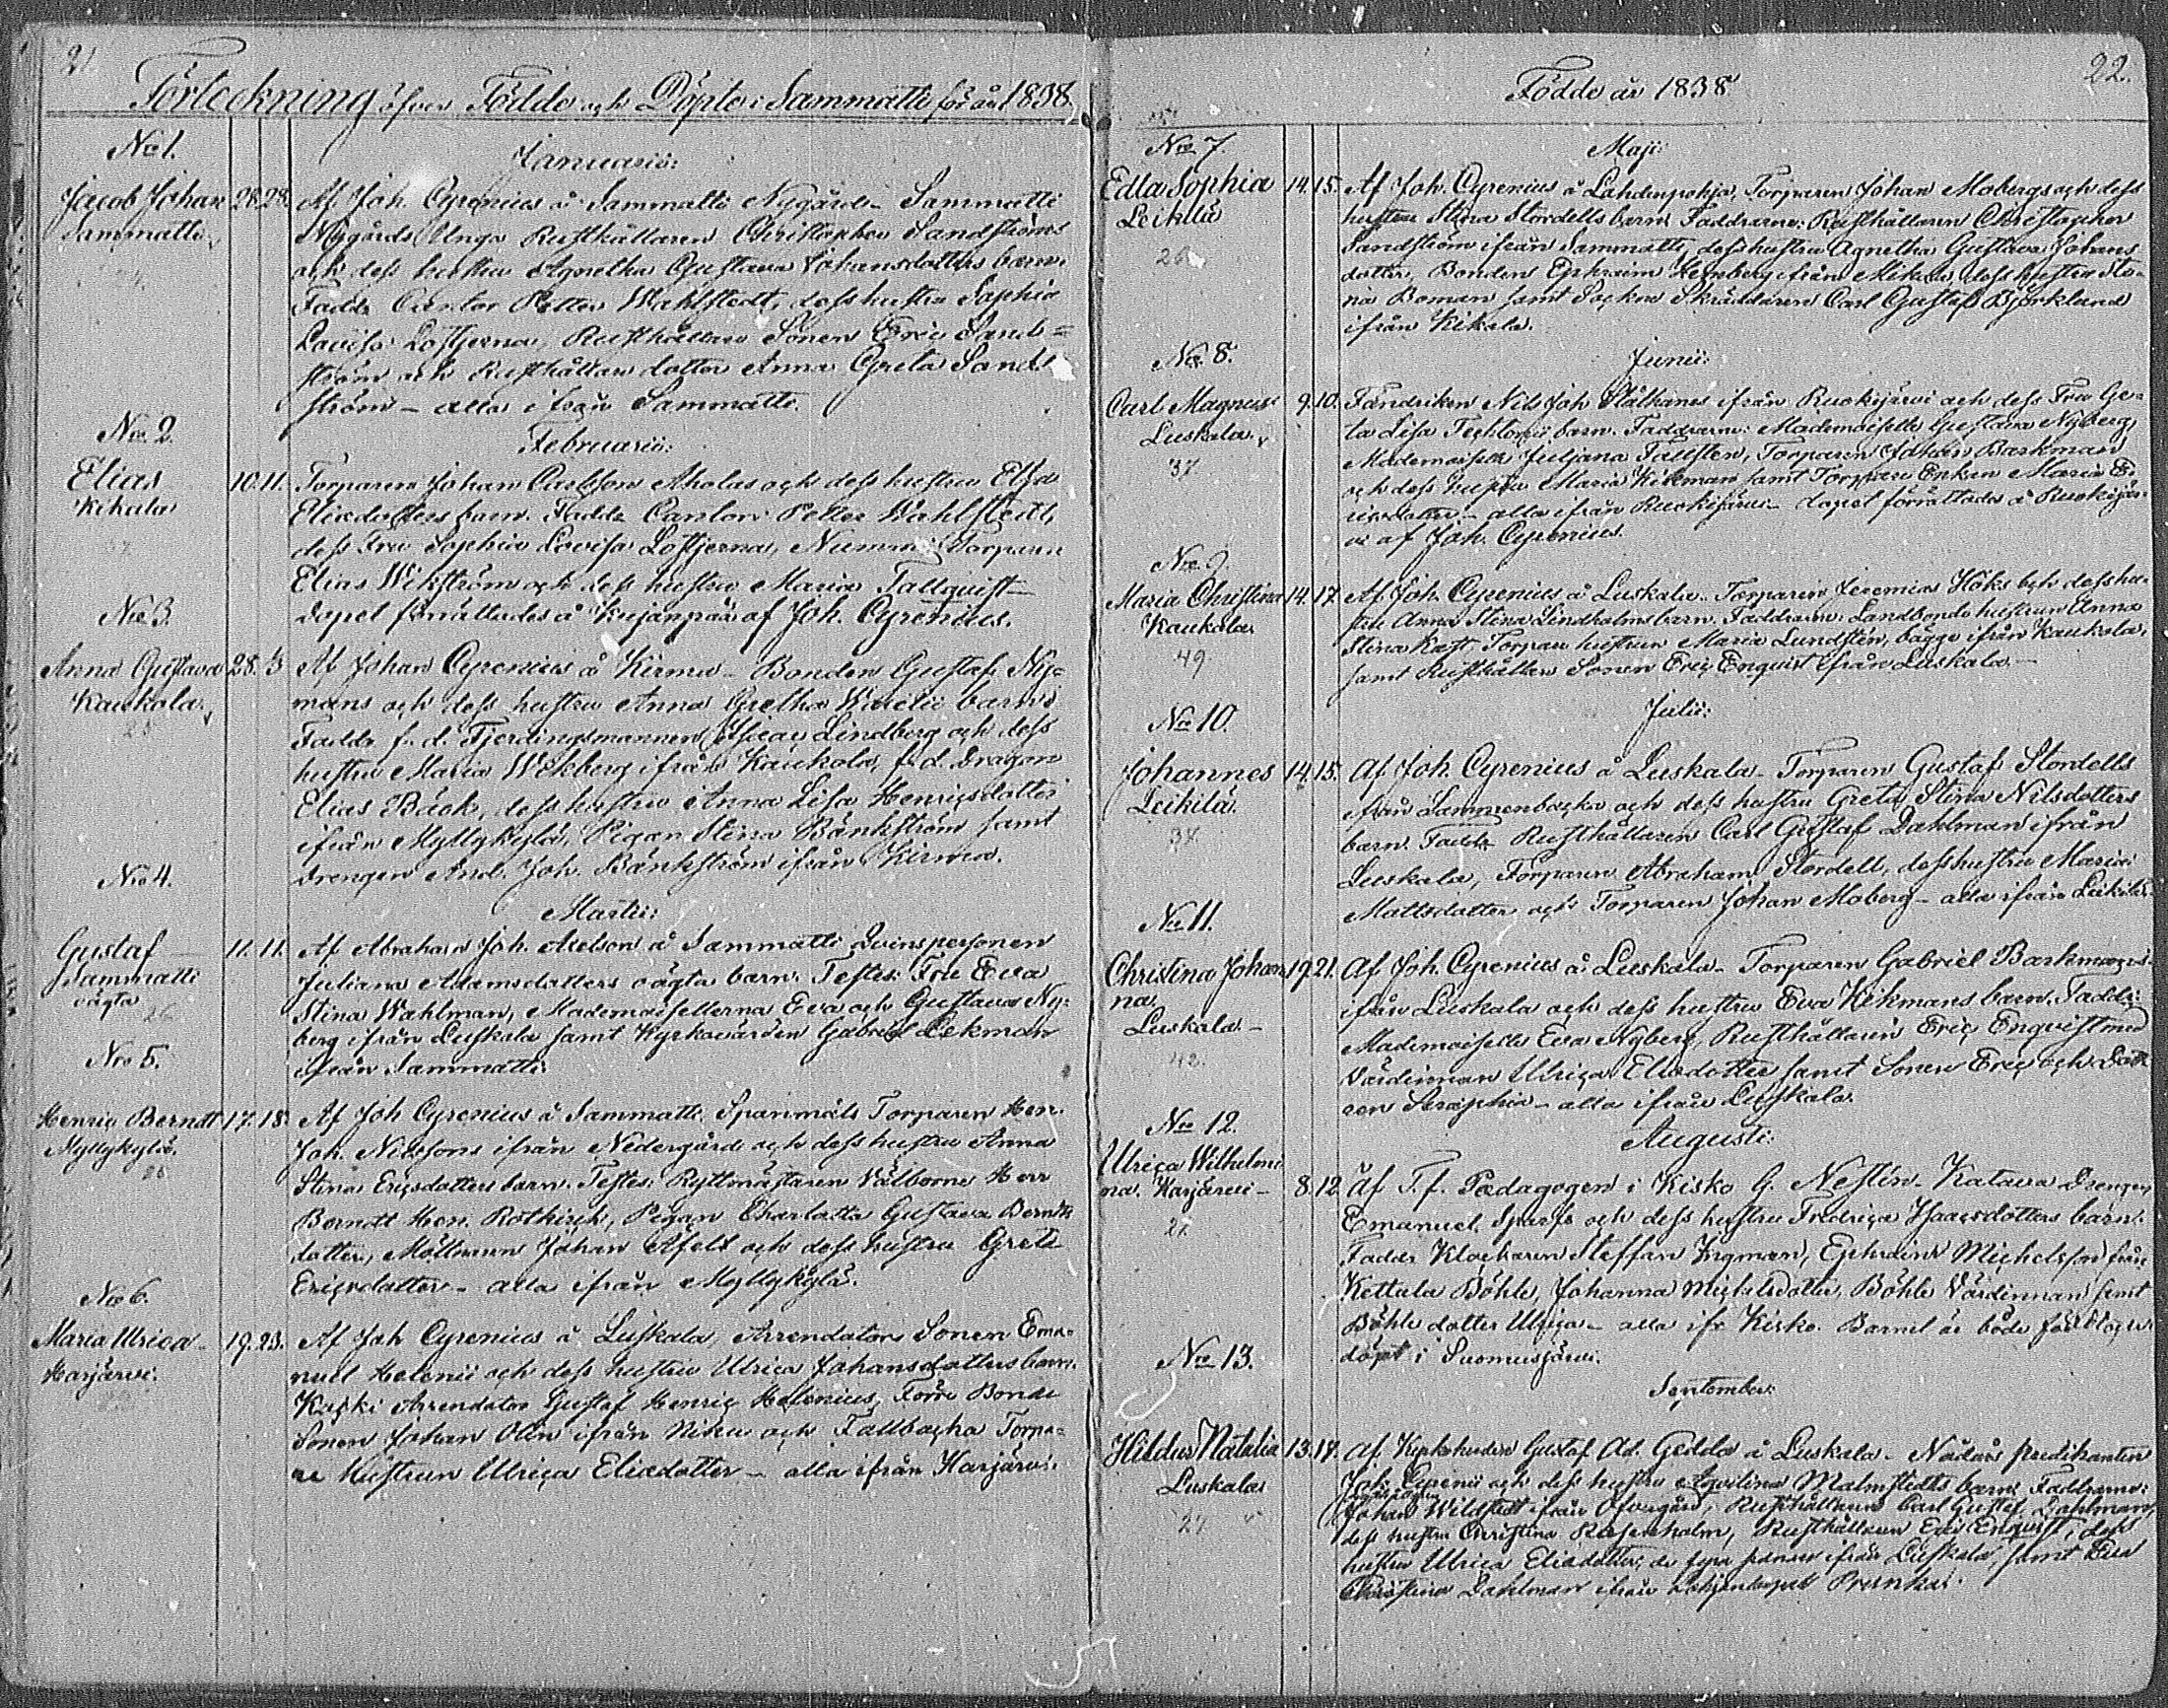 21
Förteckning öfver Födde och Döpte i Sammatti för år 1838
No 1.
Januarii:
Jacob Johan 28. 28. Af Joh. Cyrenius å Sammatti Nygårds - Sammatti
Sammatti Nygårds Unga Rusthållaren Christopher Sandströms
och dess hustru Agnetha Gustava Johansdotters barn.
Faddr Cantor Petter Wahlstedt, dess hustru Sophia
Lovisa Löftjerna, Rusthållare Sonen Eric Sand=
ström och Rusthållare dotter Anna Greta Sand
ström - alla ifrån Sammatti.
No 2.
Februarii:
Elias 10. 11. Torparen Johan Carlsson Aholas och dess hustru Elsa
Kikala Eliædotters barn. Faddr Cantor Petter Wahlstedt,
dess Fru Sophia Lovisa Löftjerna, Nummis Torparen
Elias Wikström och dess hustru Maria Tallquist
dopet förrättades å Kujanpää af Joh. Cyrenius.
No 3.
Anna Gustava 28. 3 Af Johan Cyrenius å Kirmu - Bonden Gustaf Ny=
Kaukola mans och dess hustru Anna Gretha Warelii barn.
25 Faddr f. d. Fjerdingsmannen Isaac Lindberg och dess
hustru Maria Wekberg ifrån Kaukola, f. d. Dragon
Elias Bäck, dess hustru Anna Lisa Henricsdotter
ifrån Myllykylä, Pigan Stina Bänkström samt
Drengen And. Joh. Bänkström ifrån Kirmu.
No 4.
Martii:
Gustaf 11. 11. Af Abraham Joh. Axelson å Sammatti Qvinspersonen
Sammatti Juliana Adamsdotters oägta barn. Testes: Fru Eva
oägta Stina Wahlman, Mademoisellerna Eva och Gustava Ny=
26 berg ifrån Luskala samt Kyrkovärden Gabriel Ekman
ifrån Sammatti.
No 5.
Henric Berndt 17. 18. Af Joh Cyrenius å Sammatti. Spanmåls Torparen Hen.
Myllykylä. Joh. Nilssons ifrån Nedergård och dess hustru Anna
Stina Ericsdotters barn. Testes: Ryttmästaren Välborne Herr
Berndt Hen. Rotkirch, Pigan Charlotta Gustava Berndts
dotter, Möllnaren Johan Afelt och dess hustru Greta
Ericsdotter - alla ifrån Myllykylä.
No 6.
Maria Ulrica 19. 23. Af Joh Cyrenius å Luskala, Arrendators Sonen Ema=
Harjärvi. nuel Helenii och dess hustru Ulrica Johansdotters barn.
Arrendator Gustaf Henric Helenius, Förre Bonde
Sonen Johan Olin ifrån Niku och Tallbacka Torpa=
re Hustrun Ulrica Eliædotter - alla ifrån Harjärvi.
22.
Födde år 1838
No 7.
Maji:
Edla Sophia 14. 15. Af Joh. Cyrenius å Lahdenpohja, Torparen Johan Mobergs och dess
Leikilä hustru Stina Stordells barn. Faddrarne: Rusthållaren Christopher
Sandström ifrån Sammatti, dess hustru Agnetha Gustava Johans
dotter, Bonden Ephraim Hemberg ifrån Mikus, dess hustru Ste=
na Boman samt Socken Skräddaren Carl Gustaf Björklund
ifrån Kikala.
No 8.
Junii:
Carl Magnus 9. 10. Fändriken Nils Joh Stålhanes ifrån Ruokijärvi och dess Fru Ge=
Luskala. ta Lisa Techtonii barn. Faddrarne: Mademoiselle Gustava Nyberg,
37 Mademoiselle Juljana Fallsten, Torparen Johan Barkman
och dess hustru Maria Kikman samt Torpare Enkan Maria E=
ricsdotter - alla ifrån Ruokijärvi - dopet förrättades å Ruokijär=
vi af Joh. Cyrenius.
No 9.
Maria Christina 14. 17. Af Joh. Cyrenius å Luskala. Torparen Jeremias Höks och dess hu=
Kaukola stru Anna Stina Lindholms barn. Faddrarne: Landbonde hustrun Anna
49 Stina Kast, Torpare hustrun Maria Lundsten, bägge ifrån Kaukola,
samt Rusthållare Sonen Eric Enquist ifrån Luskala. -
Julii:
No 10.
Johannes 14. 15. Af Joh. Cyrenius å Luskala - Torparen Gustaf Stordells
Leikilä. från Lammenbacka och dess hustru Greta Stina Nilsdotters
barn. Faddr Rusthållaren Carl Gustaf Dahlman ifrån
Luskala, Torparen Abraham Stordell, dess hustru Maria
Mattsdotter och Torparen Johan Moberg - alla ifrån Leikilä.
No 11.
Christina Johan 19. 21. Af Joh. Cyrenius å Luskala - Torparen Gabriel Barkmans
na ifrån Luskala och dess hustru Eva Kikmans barn. Faddr:
Luskala - Mademoiselle Eva Nyberg, Rusthållaren Eric Enquist med
42. Värdinnan Ulrica Eliædotter samt Sonen Eric och Dott
ren Seraphia - alla ifrån Luskala.
No 12.
Augusti:
Ulrica Wilhelmi
na. Harjärvi - 8. 12. Af T. f. Pædagogen i Kisko G. Neslin - Katava Drengen
Emanuel Sparfs och dess hustru Fredrica Isaacsdotters barn.
Faddr Klockaren Steffan Ingman, Ephraim Michelsson från
Kettula Böhle, Johanna Michelsdotter, Böhle Värdinnan samt
Böhle dotter Ulrica - alla ifr Kisko. Barnet är både född och
döpt i Suomusjärvi.
No 13.
September:
Hilda Natalia 13. 17. Af Kyrkoherden Gustaf Ad. Gedda å Luskala. Nådårs predikanten
Luskala Joh. Cyrenii och dess hustru Aqvilina Malmstedts barn. Faddrarne:
27 Johan Wildstedt ifrån Öfvergård, Rusthållaren Carl Gustaf Dahlman,
dess hustru Christina Rosenholm, Rusthållaren Eric Enquist, dess
hustru Ulrica Eliædotter, de fyra ifrån Luskala, samt Eva
Christina Dahlman ifrån